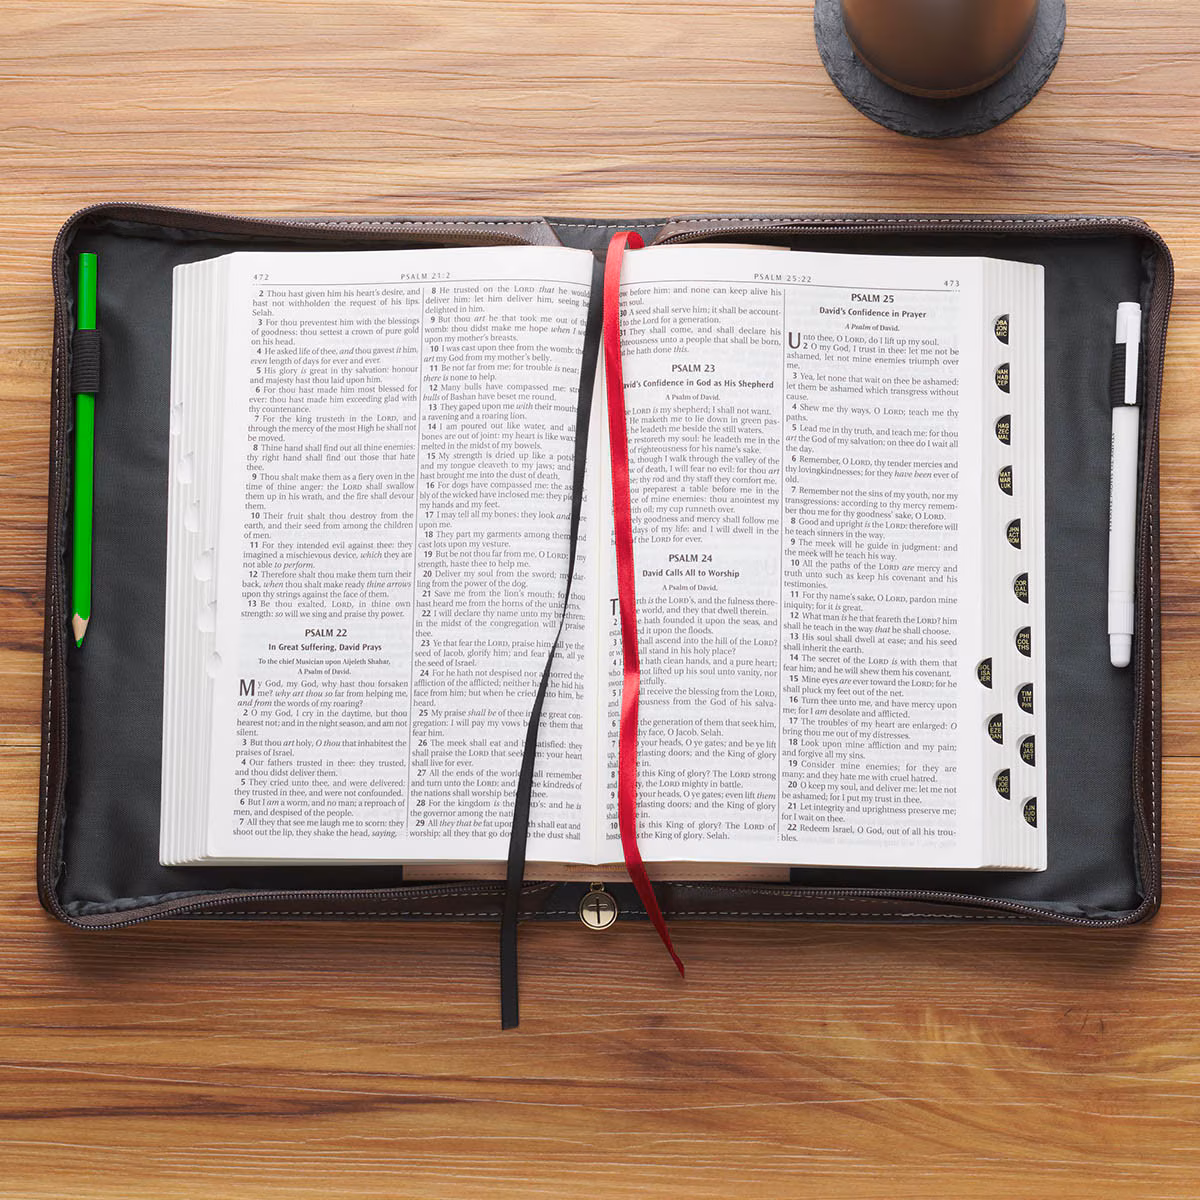 472
PSALM 21:2
2 Thou hast given him his heart's desire, and
hast not withholden the request of his lips.
Selah.
3 For thou preventest him with the blessings
of goodness: thou settest a crown of pure gold
on his head.
4 He asked life of thee, and thou gavest it him,
even length of days for ever and ever.
5 His glory is great in thy salvation: honour
and majesty hast thou laid upon him.
6 For thou hast made him most blessed for
ever: thou hast made him exceeding glad with
thy countenance.
7 For the king trusteth in the LORD, and
through the mercy of the most High he shall not
be moved.
8 Thine hand shall find out all thine enemies:
thy right hand shall find out those that hate
thee.
9 Thou shalt make them as a fiery oven in the
time of thine anger: the LORD shall swallow
them up in his wrath, and the fire shall devour
them.
10 Their fruit shalt thou destroy from the
earth, and their seed from among the children
of men.
11 For they intended evil against thee: they
imagined a mischievous device, which they are
not able to perform.
12 Therefore shalt thou make them turn their
back, when thou shalt make ready thine arrows
upon thy strings against the face of them.
13 Be thou exalted, LORD, in thine own
strength: so will we sing and praise thy power.
PSALM 22
In Great Suffering, David Prays
To the chief Musician upon Aijeleth Shahar,
A Psalm of David.
My God, my God, why hast thou forsaken
me? why art thou so far from helping me,
and from the words of my roaring?
2 O my God, I cry in the daytime, but thou
hearest not; and in the night season, and am not
silent.
3 But thou art holy, O thou that inhabitest the
praises of Israel.
4 Our fathers trusted in thee: they trusted,
and thou didst deliver them.
5 They cried unto thee, and were delivered:
they trusted in thee, and were not confounded.
6 But I am a worm, and no man; a reproach of
men, and despised of the people.
7 All they that see me laugh me to scorn: they
shoot out the lip, they shake the head, saying,
8 He trusted on the LORD that he would
deliver him: let him deliver him, seeing he
delighted in him.
9 But thou art he that took me out of the
womb: thou didst make me hope when I
upon my mother's breasts.
10 I was cast upon thee from the womb:
art my God from my mother's belly.
11 Be not far from me; for trouble is near;
there is none to help.
12 Many bulls have compassed me:
bulls of Bashan have beset me round.
13 They gaped upon me with their mouths
a ravening and a roaring lion.
14 I am poured out like water, and all
bones are out of joint: my heart is like wax;
melted in the midst of my bowels.
15 My strength is dried up like a
and my tongue cleaveth to my jaws; and
hast brought me into the dust of death.
16 For dogs have compassed me: the
bly of the wicked have inclosed me: they
my hands and my feet.
17 I may tell all my bones: they look and
upon me.
18 They part my garments among them
cast lots upon my vesture.
19 But be not thou far from me, O LORD:
strength, haste thee to help me.
20 Deliver my soul from the sword; my
ling from the power of the dog.
21 Save me from the lion's mouth: for thou
hast heard me from the horns of the unicorns.
22 I will declare thy name unto my brethren:
in the midst of the congregation will praise
thee.
23 Ye that fear the LORD, praise him; all ye the
seed of Jacob, glorify him; and fear him, all ye
the seed of Israel.
24 For he hath not despised nor abhorred the
affliction of the afflicted; neither hath he hid his
face from him; but when he cried unto him, he
heard.
25 My praise shall be of thee in the great con-
gregation: I will pay my vows before them that
fear him.
26 The meek shall eat and be satisfied: they
shall praise the LORD that seek him: your heart
shall live for ever.
27 All the ends of the world shall remember
and turn unto the LORD: and all the kindreds of
the nations shall worship before thee.
28 For the kingdom is the LORD's: and he is
the governor among the nations.
29 All they that be fat upon earth shall eat and
worship: all they that go down to the dust shall
PSALM 25:22
473
bow before him: and none can keep alive his
own soul.
30 A seed shall serve him; it shall be account-
to the Lord for a generation.
31 They shall come, and shall declare his
righteousness unto a people that shall be born,
that he hath done this.
PSALM 23
David's Confidence in God as His Shepherd
A Psalm of David.
LORD is my shepherd; I shall not want.
He maketh me to lie down in green pas-
he leadeth me beside the still waters.
restoreth my soul: he leadeth me in the
of righteousness for his name's sake.
though I walk through the valley of the
of death, I will fear no evil: for thou art
me; thy rod and thy staff they comfort me.
preparest a table before me in the
of mine enemies: thou anointest my
with oil; my cup runneth over.
goodness and mercy shall follow me
days of my life: and I will dwell in the
of the LORD for ever.
PSALM 24
David Calls All to Worship
A Psalm of David.
earth is the LORD's, and the fulness there-
world, and they that dwell therein.
2 hath founded it upon the seas, and
it upon the floods.
3 shall ascend into the hill of the LORD?
or shall stand in his holy place?
4 hath clean hands, and a pure heart;
hath not lifted up his soul unto vanity, nor
deceitfully.
5 shall receive the blessing from the LORD,
righteousness from the God of his salva-
6 is the generation of them that seek him,
thy face, O Jacob. Selah.
7 your heads, O ye gates; and be ye lift
up, everlasting doors; and the King of glory
shall
8 is this King of glory? The LORD strong
the LORD mighty in battle.
9 your heads, O ye gates; even lift them
up, everlasting doors; and the King of glory
shall come in.
10 is this King of glory? The LORD of
hosts, is the King of glory. Selah.
PSALM 25
David's Confidence in Prayer
A Psalm of David.
Unto thee, O LORD, do I lift up my soul.
2 O my God, I trust in thee: let me not be
ashamed, let not mine enemies triumph over
me.
3 Yea, let none that wait on thee be ashamed:
let them be ashamed which transgress without
cause.
4 Shew me thy ways, O LORD; teach me thy
paths.
5 Lead me in thy truth, and teach me: for thou
art the God of my salvation; on thee do I wait all
the day.
6 Remember, O LORD, thy tender mercies and
thy lovingkindnesses; for they have been ever of
old.
7 Remember not the sins of my youth, nor my
transgressions: according to thy mercy remem-
ber thou me for thy goodness' sake, O LORD.
8 Good and upright is the LORD: therefore will
he teach sinners in the way.
9 The meek will he guide in judgment: and
the meek will he teach his way.
10 All the paths of the LORD are mercy and
truth unto such as keep his covenant and his
testimonies.
11 For thy name's sake, O LORD, pardon mine
iniquity; for it is great.
12 What man is he that feareth the LORD? him
shall he teach in the way that he shall choose.
13 His soul shall dwell at ease; and his seed
shall inherit the earth.
14 The secret of the LORD is with them that
fear him; and he will shew them his covenant.
15 Mine eyes are ever toward the LORD; for he
shall pluck my feet out of the net.
16 Turn thee unto me, and have mercy upon
me; for I am desolate and afflicted.
17 The troubles of my heart are enlarged: O
bring thou me out of my distresses.
18 Look upon mine affliction and my pain;
and forgive all my sins.
19 Consider mine enemies; for they are
many; and they hate me with cruel hatred.
20 O keep my soul, and deliver me: let me not
be ashamed; for I put my trust in thee.
21 Let integrity and uprightness preserve me;
for I wait on thee.
22 Redeem Israel, O God, out of all his trou-
bles.
OBA
JON
MIC
NAH
HAB
ZEP
HAG
ZEC
MAL
MAT
MAR
LUK
JHN
ACT
ROM
COR
GAL
EPH
PHI
COL
THS
SOL
ISA
JER
TIM
TIT
PHN
LAM
EZE
DAN
HEB
JAS
PET
HOS
JOE
AMO
1JN
JUD
REV